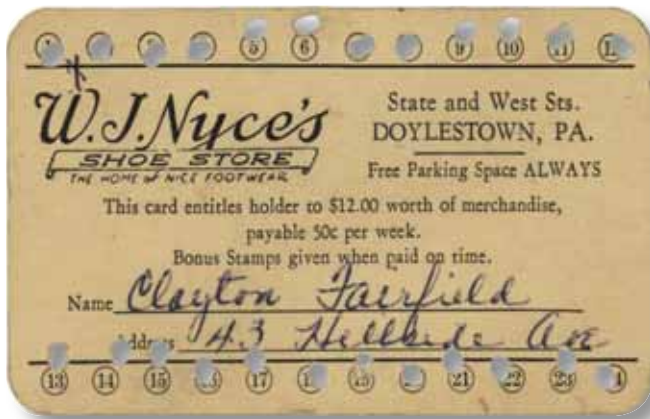 5 6 9 10 11
W.J.Nyce's
SHOE STORE
THE HOME of NICE FOOTWEAR
State and West Sts.
DOYLESTOWN, PA.
Free Parking Space ALWAYS
This card entitles holder to $12.00 worth of merchandise,
payable 50c per week.
Bonus Stamps given when paid on time.
Name Clayton Fairfield
Address 43 Hillside Ave
13 14 15 16 17 21 22 23